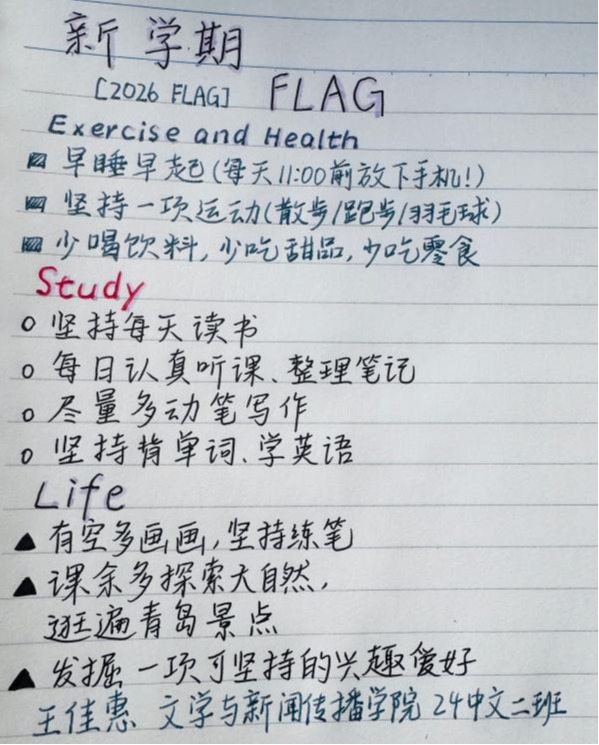 新学期
[2026 FLAG] FLAG
Exercise and Health
早睡早起(每天11:00前放下手机!)
坚持一项运动(散步/跑步/羽毛球)
少喝饮料,少吃甜品,少吃零食
Study
坚持每天读书
每日认真听课、整理笔记
尽量多动笔写作
坚持背单词、学英语
Life
▲有空多画画,坚持练笔
▲课余多探索大自然,
逛遍青岛景点
▲发掘一项可坚持的兴趣爱好
王佳惠 文学与新闻传播学院 24中文二班